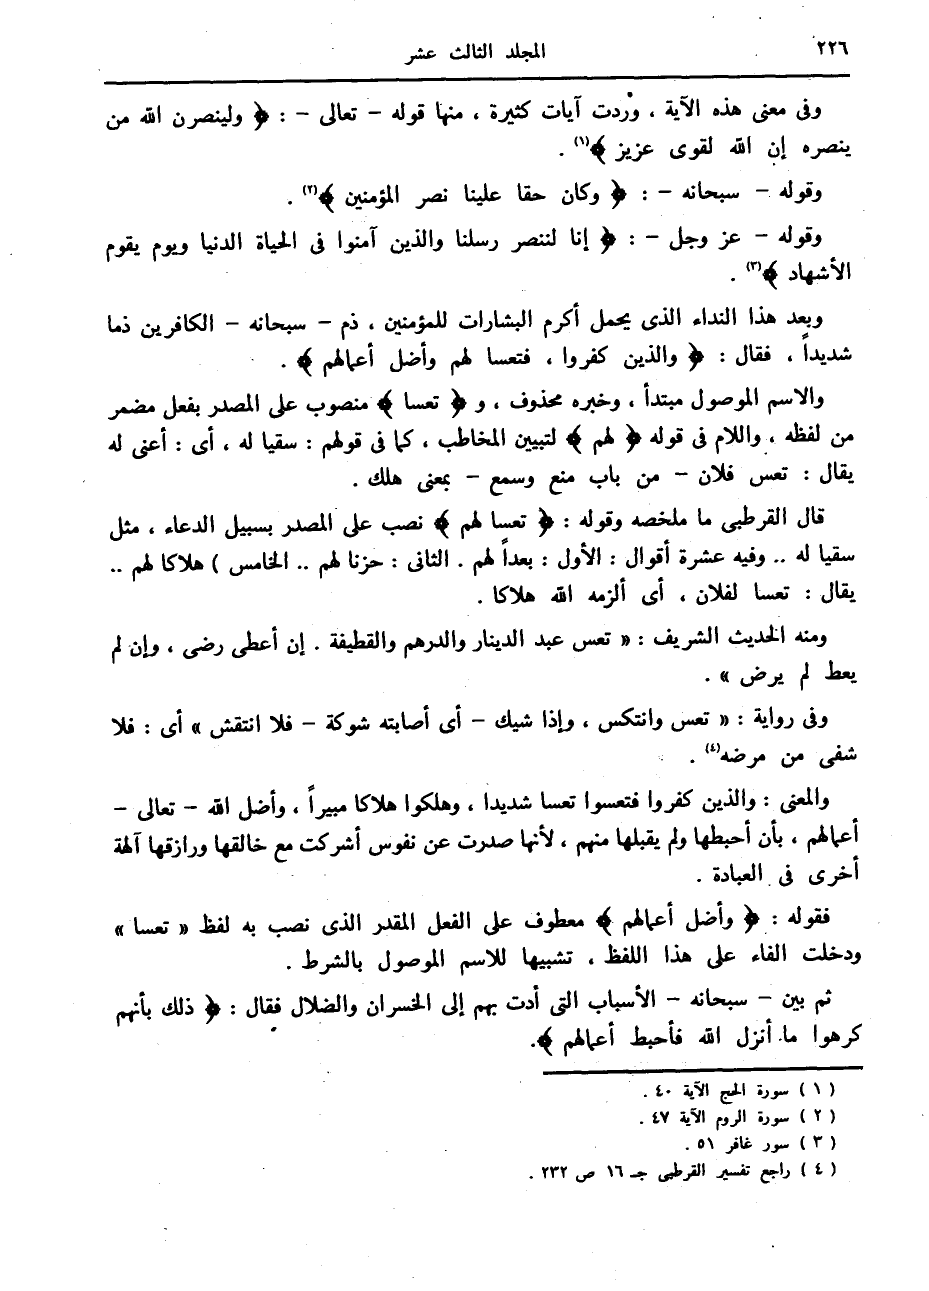 ٢٢٦
المجلد الثالث عشر
وفى معنى هذه الآية ، وردت آيات كثيرة ، منها قوله – تعالى – : ﴿ ولينصرن الله من
ينصره إن الله لقوى عزيز ﴾(١) .
وقوله – سبحانه – : ﴿ وكان حقا علينا نصر المؤمنين ﴾(٢) .
وقوله – عز وجل – : ﴿ إنا لننصر رسلنا والذين آمنوا فى الحياة الدنيا ويوم يقوم
الأشهاد ﴾(٣) .
وبعد هذا النداء الذى يحمل أكرم البشارات للمؤمنين ، ذم – سبحانه – الكافرين ذما
شديداً ، فقال : ﴿ والذين كفروا ، فتعسا لهم وأضل أعمالهم ﴾ .
والاسم الموصول مبتدأ ، وخبره محذوف ، و ﴿ تعسا ﴾ منصوب على المصدر بفعل مضمر
من لفظه ، واللام فى قوله ﴿ لهم ﴾ لتبيين المخاطب ، كما فى قولهم : سقيا له ، أى : أعنى له
يقال : تعس فلان – من باب منع وسمع – بمعنى هلك .
قال القرطبى ما ملخصه وقوله : ﴿ تعسا لهم ﴾ نصب على المصدر بسبيل الدعاء ، مثل
سقيا له .. وفيه عشرة أقوال : الأول : بعداً لهم . الثانى : حزنا لهم .. الخامس ) هلاكا لهم ..
يقال : تعسا لفلان ، أى ألزمه الله هلاكا .
ومنه الحديث الشريف : « تعس عبد الدينار والدرهم والقطيفة . إن أعطى رضى ، وإن لم
يعط لم يرض » .
وفى رواية : « تعس وانتكس ، وإذا شيك – أى أصابته شوكة – فلا انتقش » أى : فلا
شفى من مرضه(٤) .
والمعنى : والذين كفروا فتعسوا تعسا شديدا ، وهلكوا هلاكا مبيراً ، وأضل الله – تعالى –
أعمالهم ، بأن أحبطها ولم يقبلها منهم ، لأنها صدرت عن نفوس أشركت مع خالقها ورازقها آلهة
أخرى فى العبادة .
فقوله : ﴿ وأضل أعمالهم ﴾ معطوف على الفعل المقدر الذى نصب به لفظ « تعسا »
ودخلت الفاء على هذا اللفظ ، تشبيها للاسم الموصول بالشرط .
ثم بين – سبحانه – الأسباب التى أدت بهم إلى الخسران والضلال فقال : ﴿ ذلك بأنهم
كرهوا ما أنزل الله فأحبط أعمالهم ﴾.
( ١ ) سورة الحج الآية ٤٠ .
( ٢ ) سورة الروم الآية ٤٧ .
( ٣ ) سور غافر ٥١ .
( ٤ ) راجع تفسير القرطبى جـ ١٦ ص ٢٣٢ .